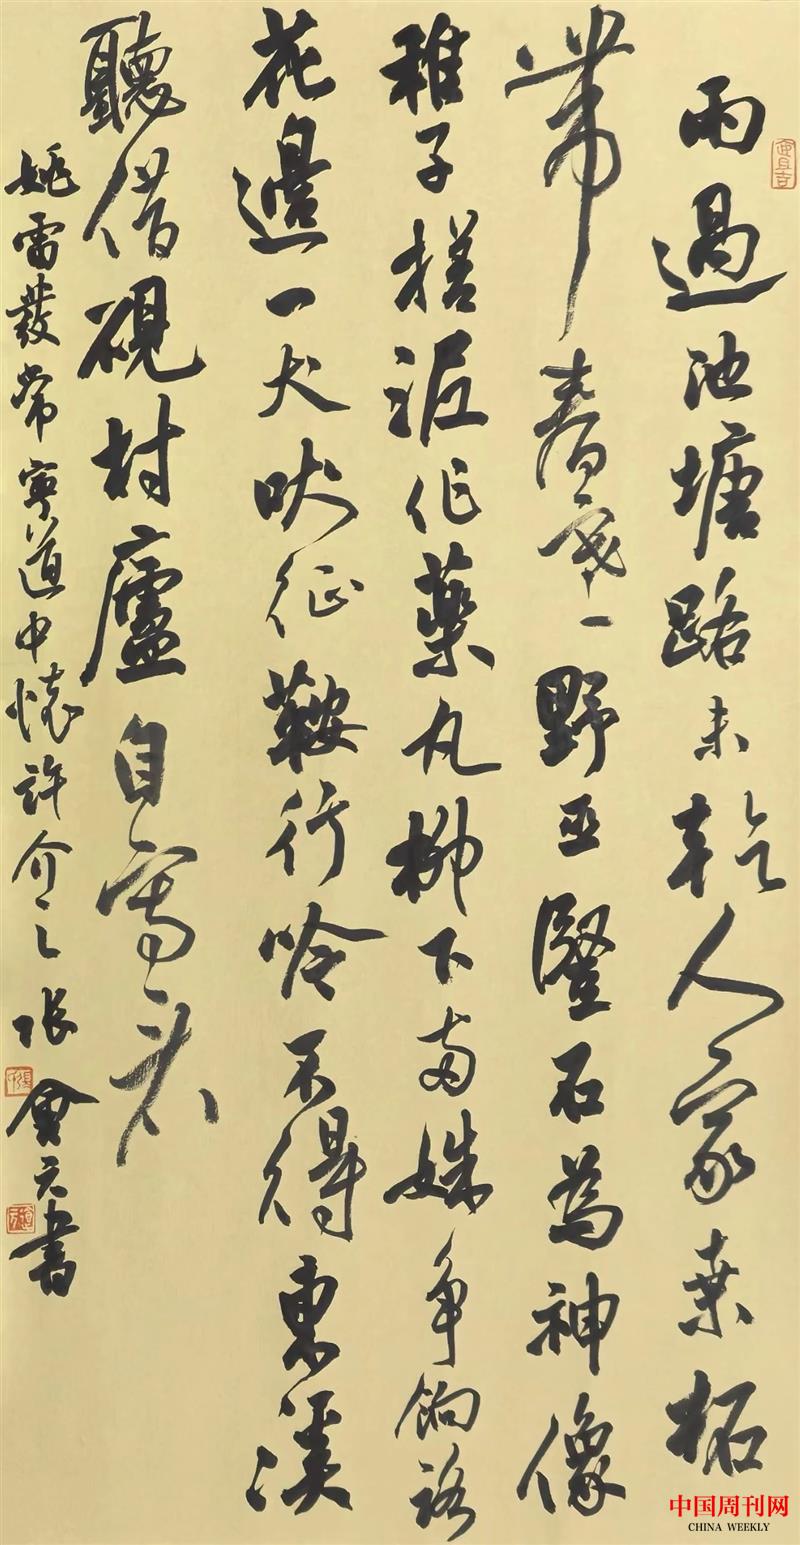 雨過池塘路未乾人家桒柘
帶春寒野巫豎石為神像
稚子搓泥作藥丸柳下两姝争餉路
花邊一犬吠征鞍行吟不得東溪
聽借硯村廬自寫看
姚雷發常寧道中懷許介之張會元書
中国周刊网
CHINA WEEKLY